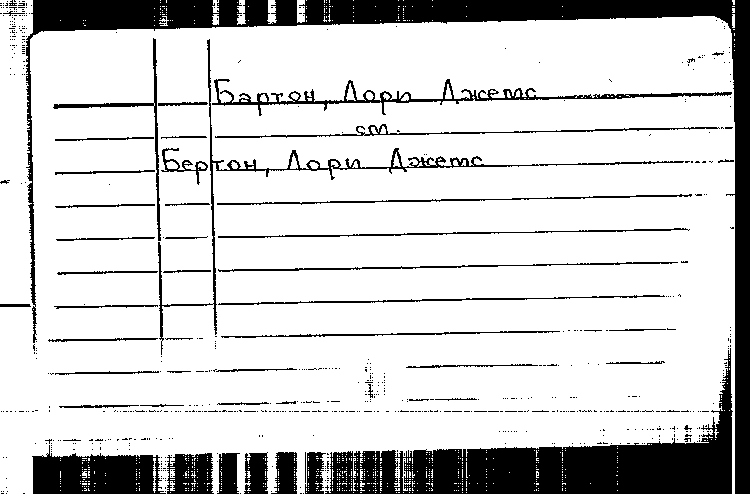 Бартон, Лори Джемс
см.
Бертон, Лори Джемс